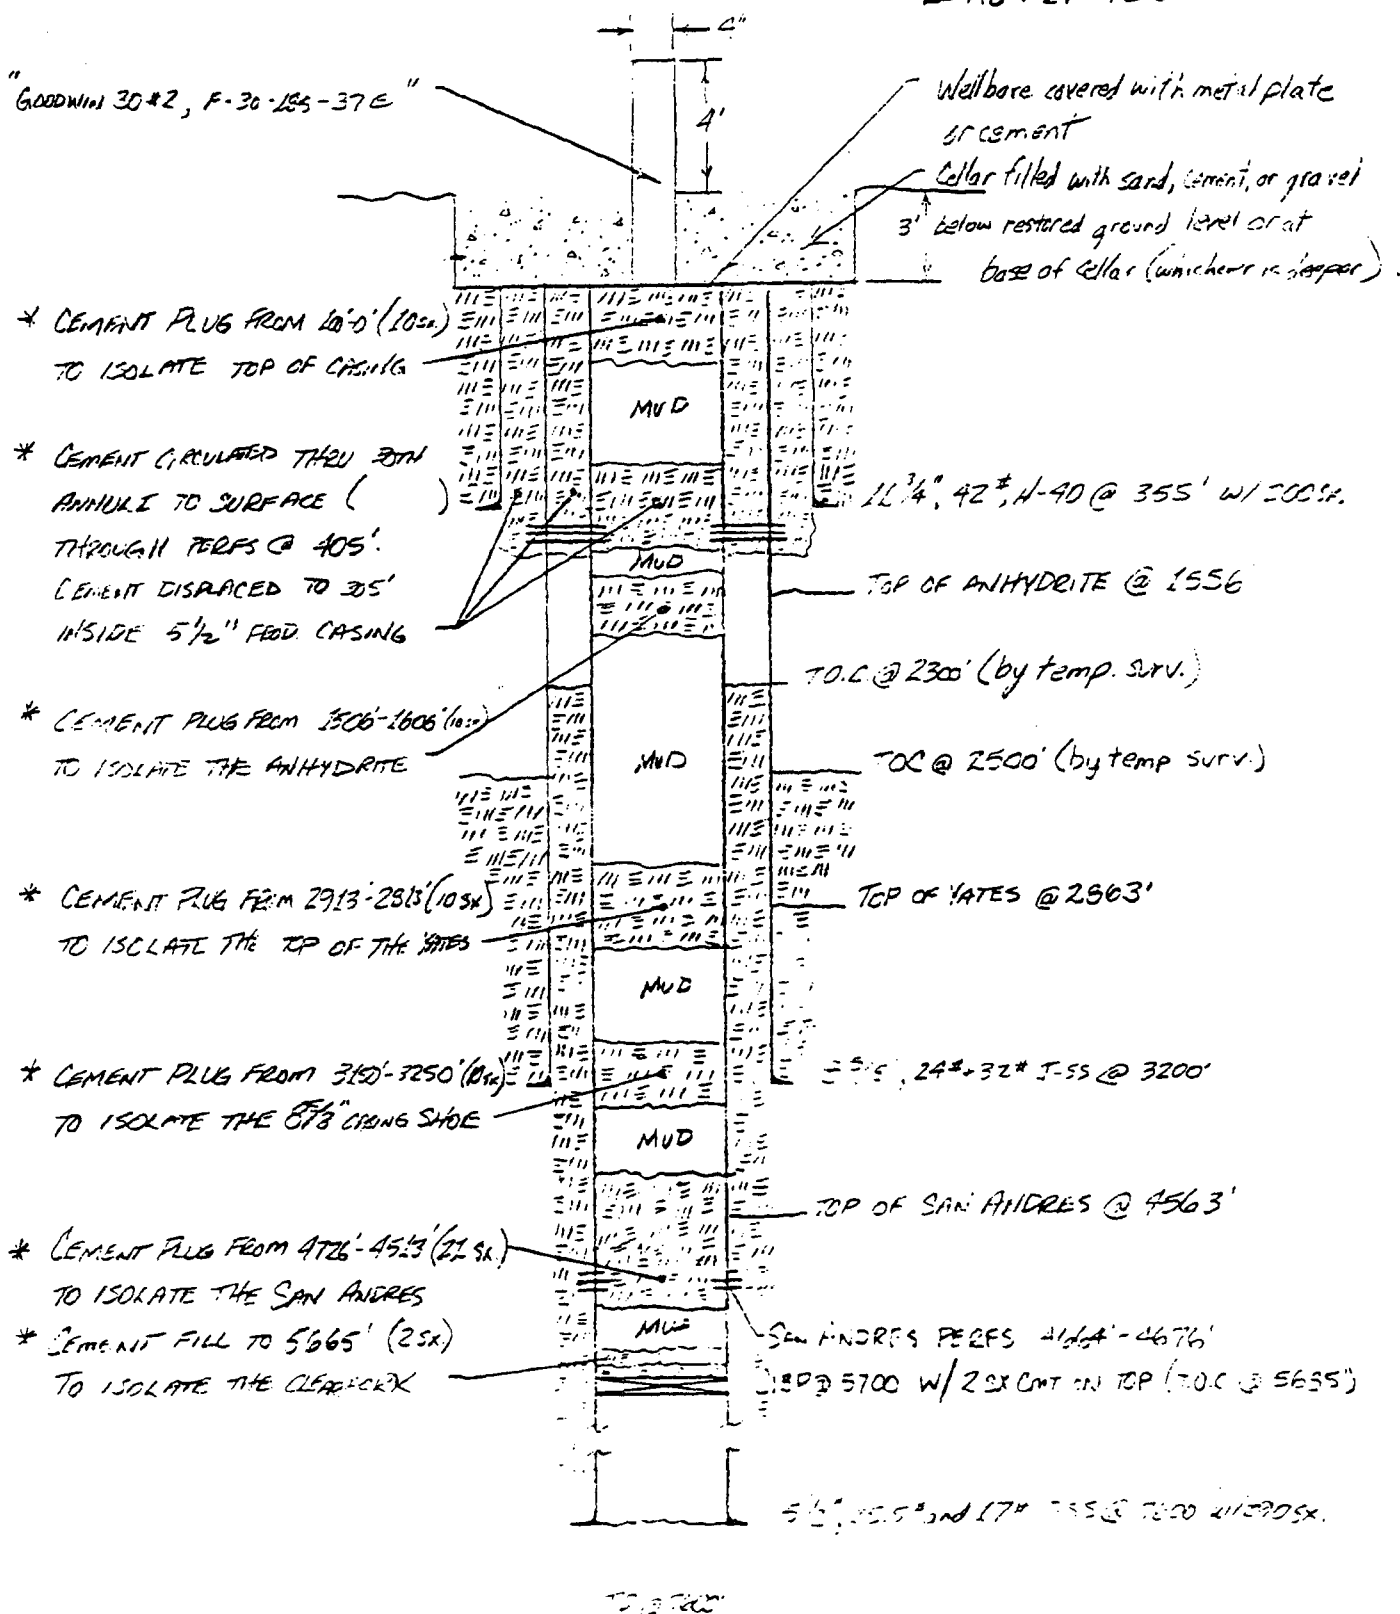 4"
"GOODWIN 30 #2, F-30-18S-37E"
4'
Wellbore covered with metal plate
or cement
Cellar filled with sand, cement, or gravel
3' below restored ground level or at
base of cellar (whichever is deeper)
* CEMENT PLUG FROM 100'-0' (10sx)
TO ISOLATE TOP OF CASING
MUD
* CEMENT CIRCULATED THRU BOTH
ANNULI TO SURFACE ( )
THROUGH PERFS @ 405'.
CEMENT DISPLACED TO 305'
INSIDE 5 1/2" PROD. CASING
11 3/4", 42#, H-40 @ 355' W/ 200 SX.
MUD
TOP OF ANHYDRITE @ 1556
T.O.C. @ 2300' (by temp. surv.)
* CEMENT PLUG FROM 1506'-1606' (10sx)
TO ISOLATE THE ANHYDRITE
MUD
TOC @ 2500' (by temp surv.)
* CEMENT PLUG FROM 2913'-2813' (10 SX)
TO ISOLATE THE TOP OF THE YATES
TOP OF YATES @ 2863'
MUD
* CEMENT PLUG FROM 3150'-3250' (10sx)
TO ISOLATE THE 8 5/8" CASING SHOE
24# + 32# J-55 @ 3200'
MUD
TOP OF SAN ANDRES @ 4563'
* CEMENT PLUG FROM 4726'-4513' (21 SX.)
TO ISOLATE THE SAN ANDRES
* CEMENT FILL TO 5665' (2SX)
TO ISOLATE THE
MUD
SAN ANDRES PERFS 4664'-4676'
@ 5700 W/ 2 SX CMT ON TOP (T.O.C @
5 1/2", 15.5# and 17#